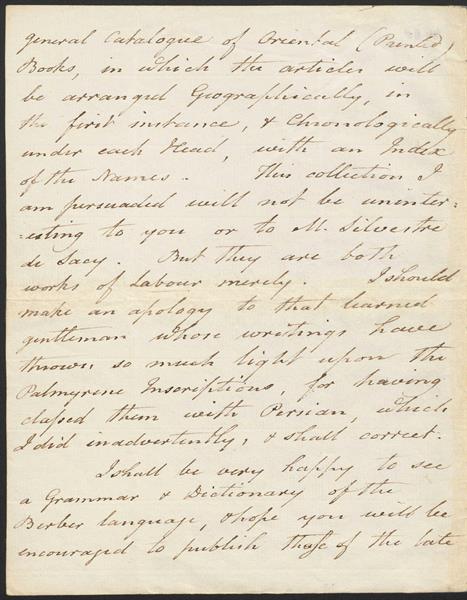 general Catalogue of Oriental (Printed)
Books, in which the articles will
be arranged Geographically, in
the first instance, & Chronologically
under each Head, with an Index
of the Names. This collection I
am persuaded will not be uninter-
-esting to you or to M. Silvestre
de Sacy. But they are both
works of Labour merely. I should
make an apology to that learned
gentleman whose writings have
thrown so much light upon the
Palmyrene Inscriptions, for having
classed them with Persian, which
I did inadvertently, & shall correct.
I shall be very happy to see
a Grammar & Dictionary of the
Berber language, & hope you will be
encouraged to publish those of the late